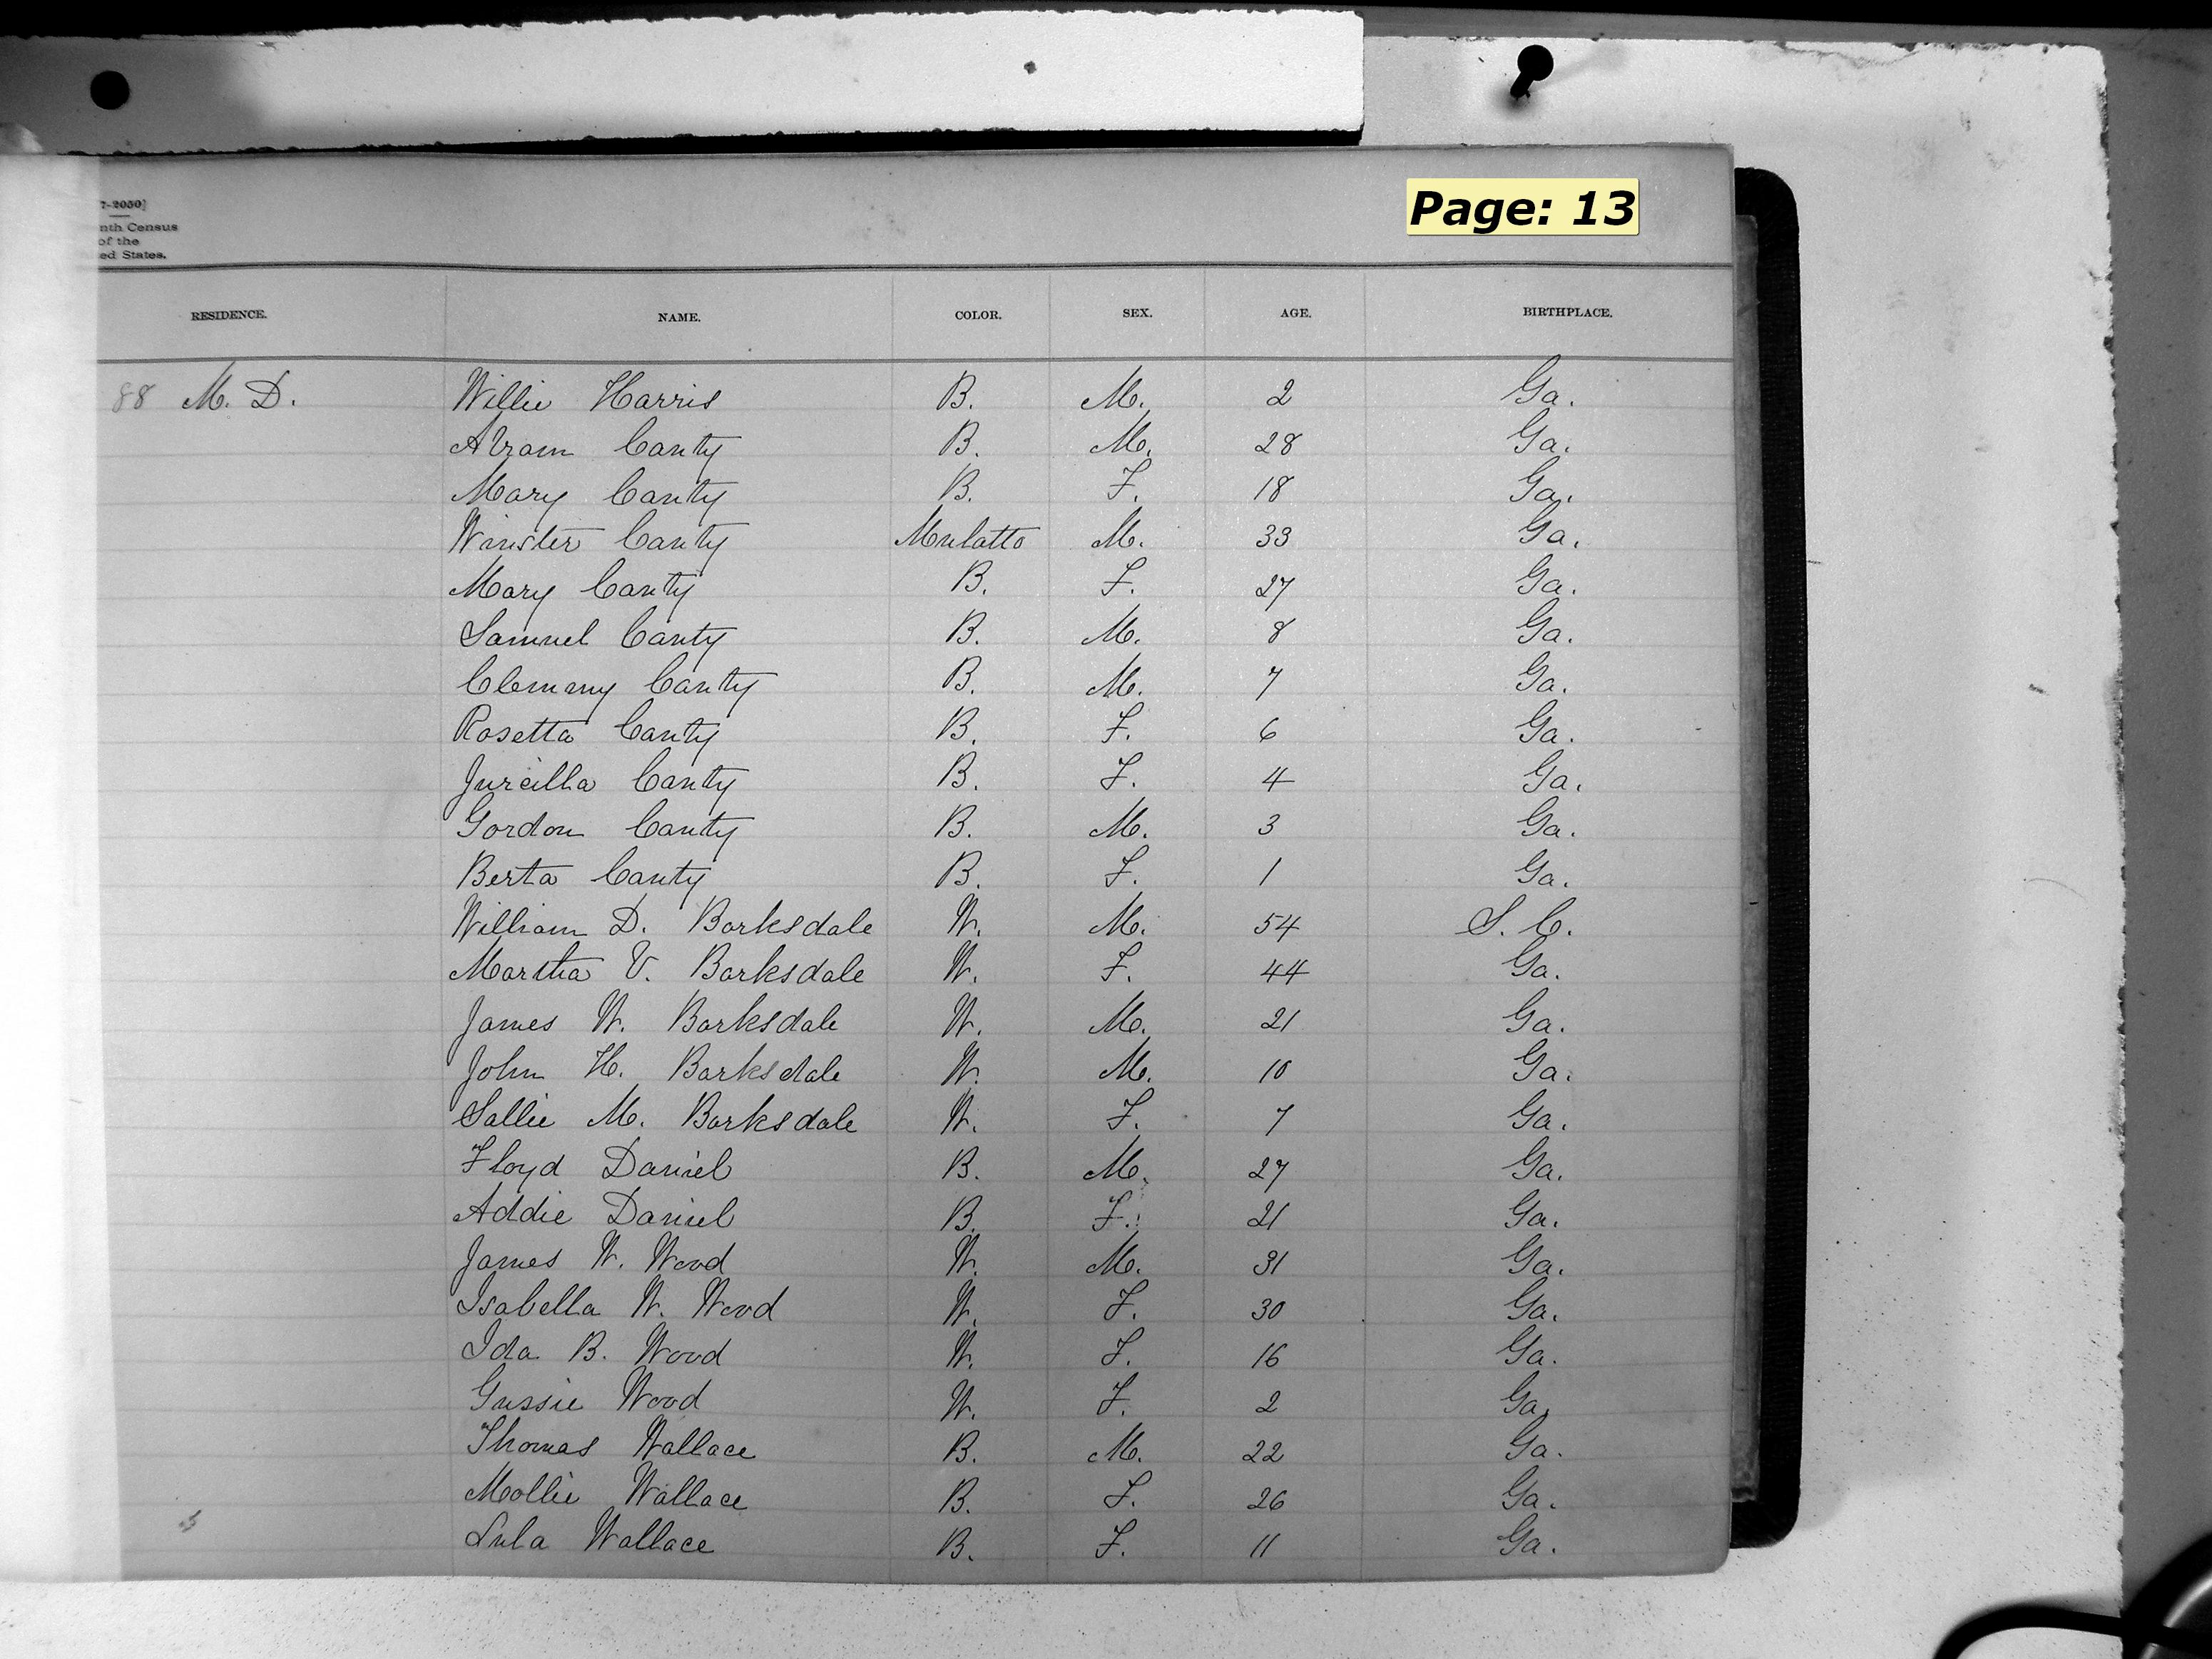 Page: 13
7-2050]
nth Census
of the
ed States.
RESIDENCE. NAME. COLOR. SEX. AGE. BIRTHPLACE.
88 M. D. Willie Harris B. M. 2 Ga.
Abram Canty B. M. 28 Ga.
Mary Canty B. F. 18 Ga.
Winster Canty Mulatto M. 33 Ga.
Mary Canty B. F. 27 Ga.
Samuel Canty B. M. 8 Ga.
Clemmy Canty B. M. 7 Ga.
Rosetta Canty B. F. 6 Ga.
Jurcilla Canty B. F. 4 Ga.
Gordon Canty B. M. 3 Ga.
Berta Canty B. F. 1 Ga.
William D. Barksdale W. M. 54 S. C.
Martha V. Barksdale W. F. 44 Ga.
James W. Barksdale W. M. 21 Ga.
John H. Barksdale W. M. 10 Ga.
Sallie M. Barksdale W. F. 7 Ga.
Floyd Daniel B. M. 27 Ga.
Addie Daniel B. F. 21 Ga.
James W. Wood W. M. 31 Ga.
Isabella W. Wood W. F. 30 Ga.
Ida B. Wood W. F. 16 Ga.
Gussie Wood W. F. 2 Ga.
Thomas Wallace B. M. 22 Ga.
Mollie Wallace B. F. 26 Ga.
Lula Wallace B. F. 11 Ga.